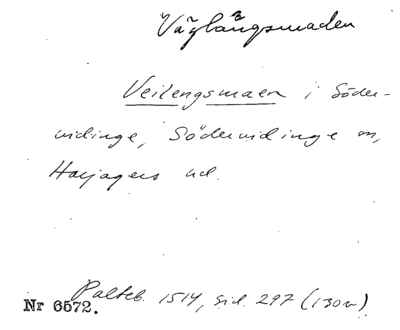 Väglångsmaden
Veilengsmaen i Söder-
vidinge, Södervidinge sn,
Harjagers hd.
Palteb. 1514, sid. 297 (130v)
Nr 6572.